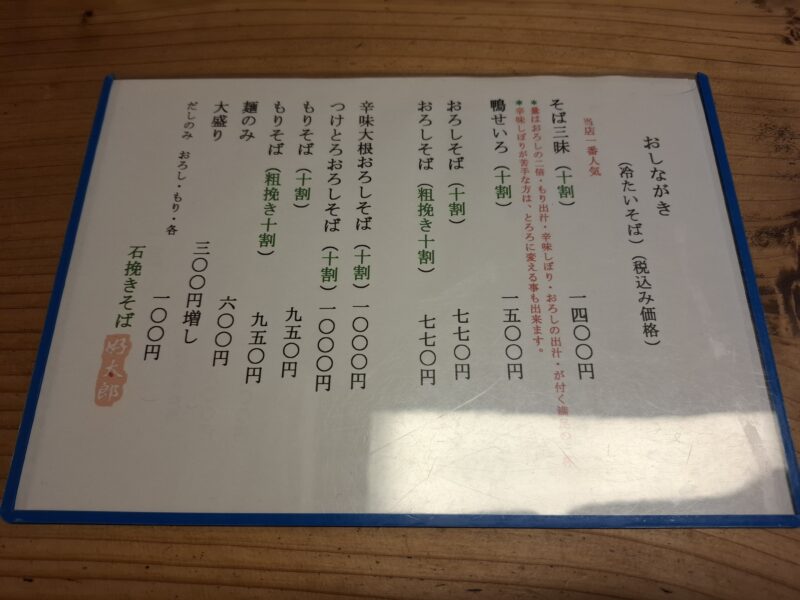 おしながき
(冷たいそば)(税込み価格)
当店一番人気
そば三昧(十割) 一四〇〇円
*量はおろしの二倍・もり出汁・辛味しぼり・おろしの出汁・が付く
*辛味しぼりが苦手な方は、とろろに変える事も出来ます。
鴨せいろ(十割) 一五〇〇円
おろしそば(十割) 七七〇円
おろしそば(粗挽き十割) 七七〇円
辛味大根おろしそば(十割)一〇〇〇円
つけとろおろしそば(十割)一〇〇〇円
もりそば(十割) 九五〇円
もりそば(粗挽き十割) 九五〇円
麺のみ 六〇〇円
大盛り 三〇〇円増し
だしのみ おろし・もり・各 一〇〇円
石挽きそば
好太郎